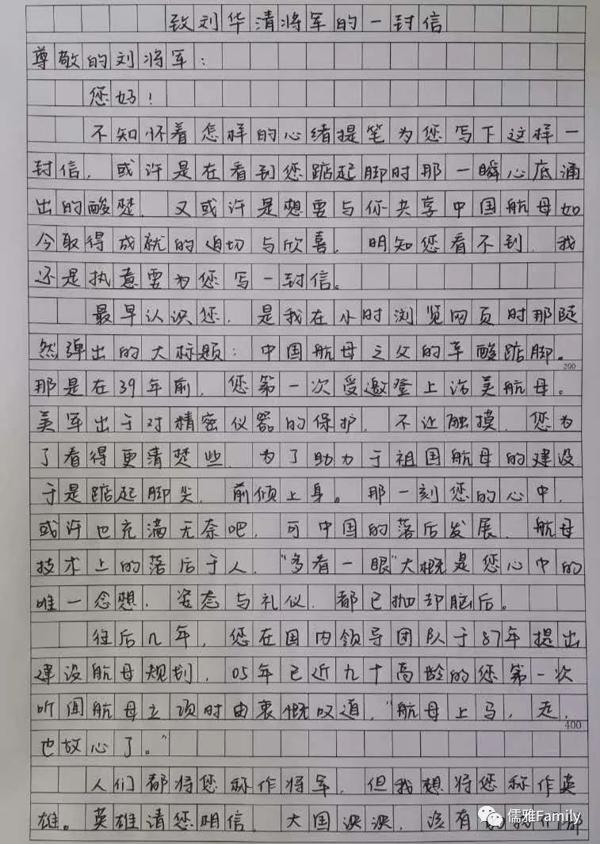 致刘华清将军的一封信
尊敬的刘将军：
您好！
不知怀着怎样的心绪提笔为您写下这样一
封信，或许是在看到您踮起脚时那一瞬心底涌
出的酸楚，又或许是想要与你共享中国航母如
今取得成就的迫切与欣喜，明知您看不到，我
还是执意要为您写一封信。
最早认识您，是我在小时浏览网页时那陡
然弹出的大标题：中国航母之父的辛酸踮脚。
200
那是在39年前，您第一次受邀登上访美航母。
美军出于对精密仪器的保护，不让触摸，您为
了看得更清楚些，为了助力于祖国航母的建设
于是踮起脚尖，前倾上身。那一刻您的心中，
或许也充满无奈吧，可中国的落后发展，航母
技术上的落后于人，“多看一眼”大概是您心中的
唯一念想，姿态与礼仪，都已抛却脑后。
往后几年，您在国内领导团队于87年提出
建设航母规划，05年已近九十高龄的您第一次
听闻航母立项时由衷慨叹道，“航母上马，走，
400
也放心了。”
人们都将您称作将军，但我想将您称作英
雄。英雄请您明信，大国泱泱，没有
儒雅Family